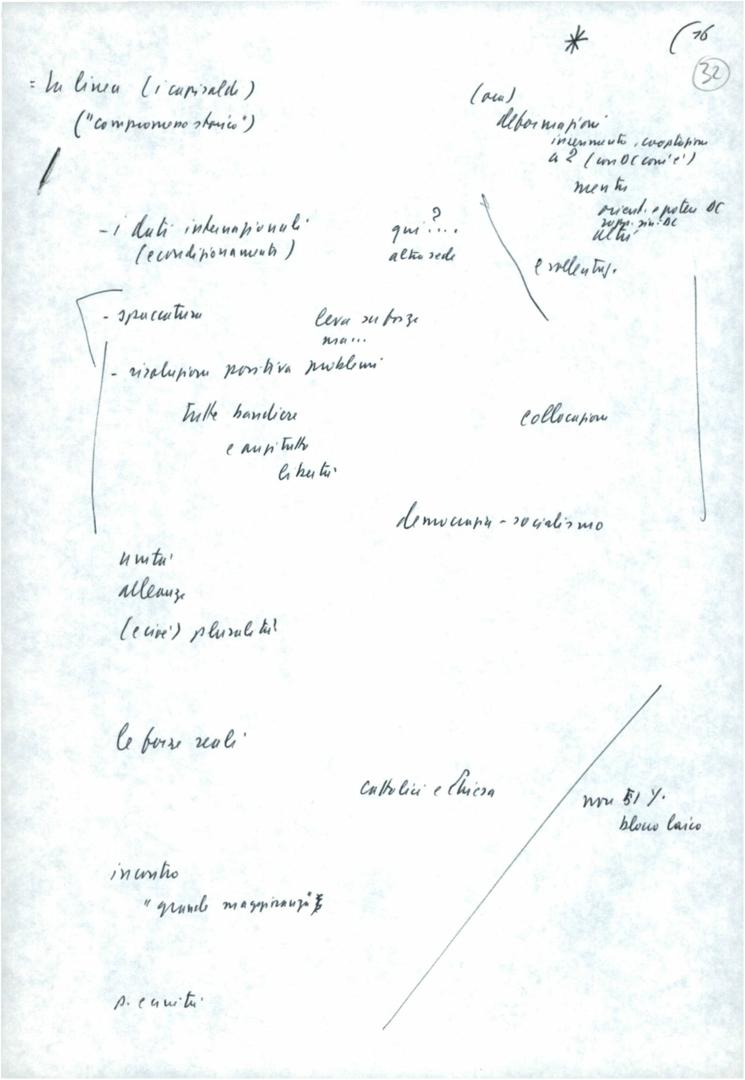 * (16
32
= La linea (i capisaldi)
("compromesso storico")
(ora)
deformazioni
inserimento, cooptazione
a 2 (con DC com'è)
orient. e potere DC
altri
- i dati internazionali
(e condizionamenti)
qui?...
altra sede
e sollecitaz.
- spaccatura
leva su forze
ma...
- risoluzione positiva problemi
tutte bandiere
e anzitutto
libertà
collocazione
democrazia - socialismo
unità
alleanze
(e cioè) pluralità
le forze reali
cattolici e Chiesa
non 51 %
blocco laico
incontro
"grande maggioranza"